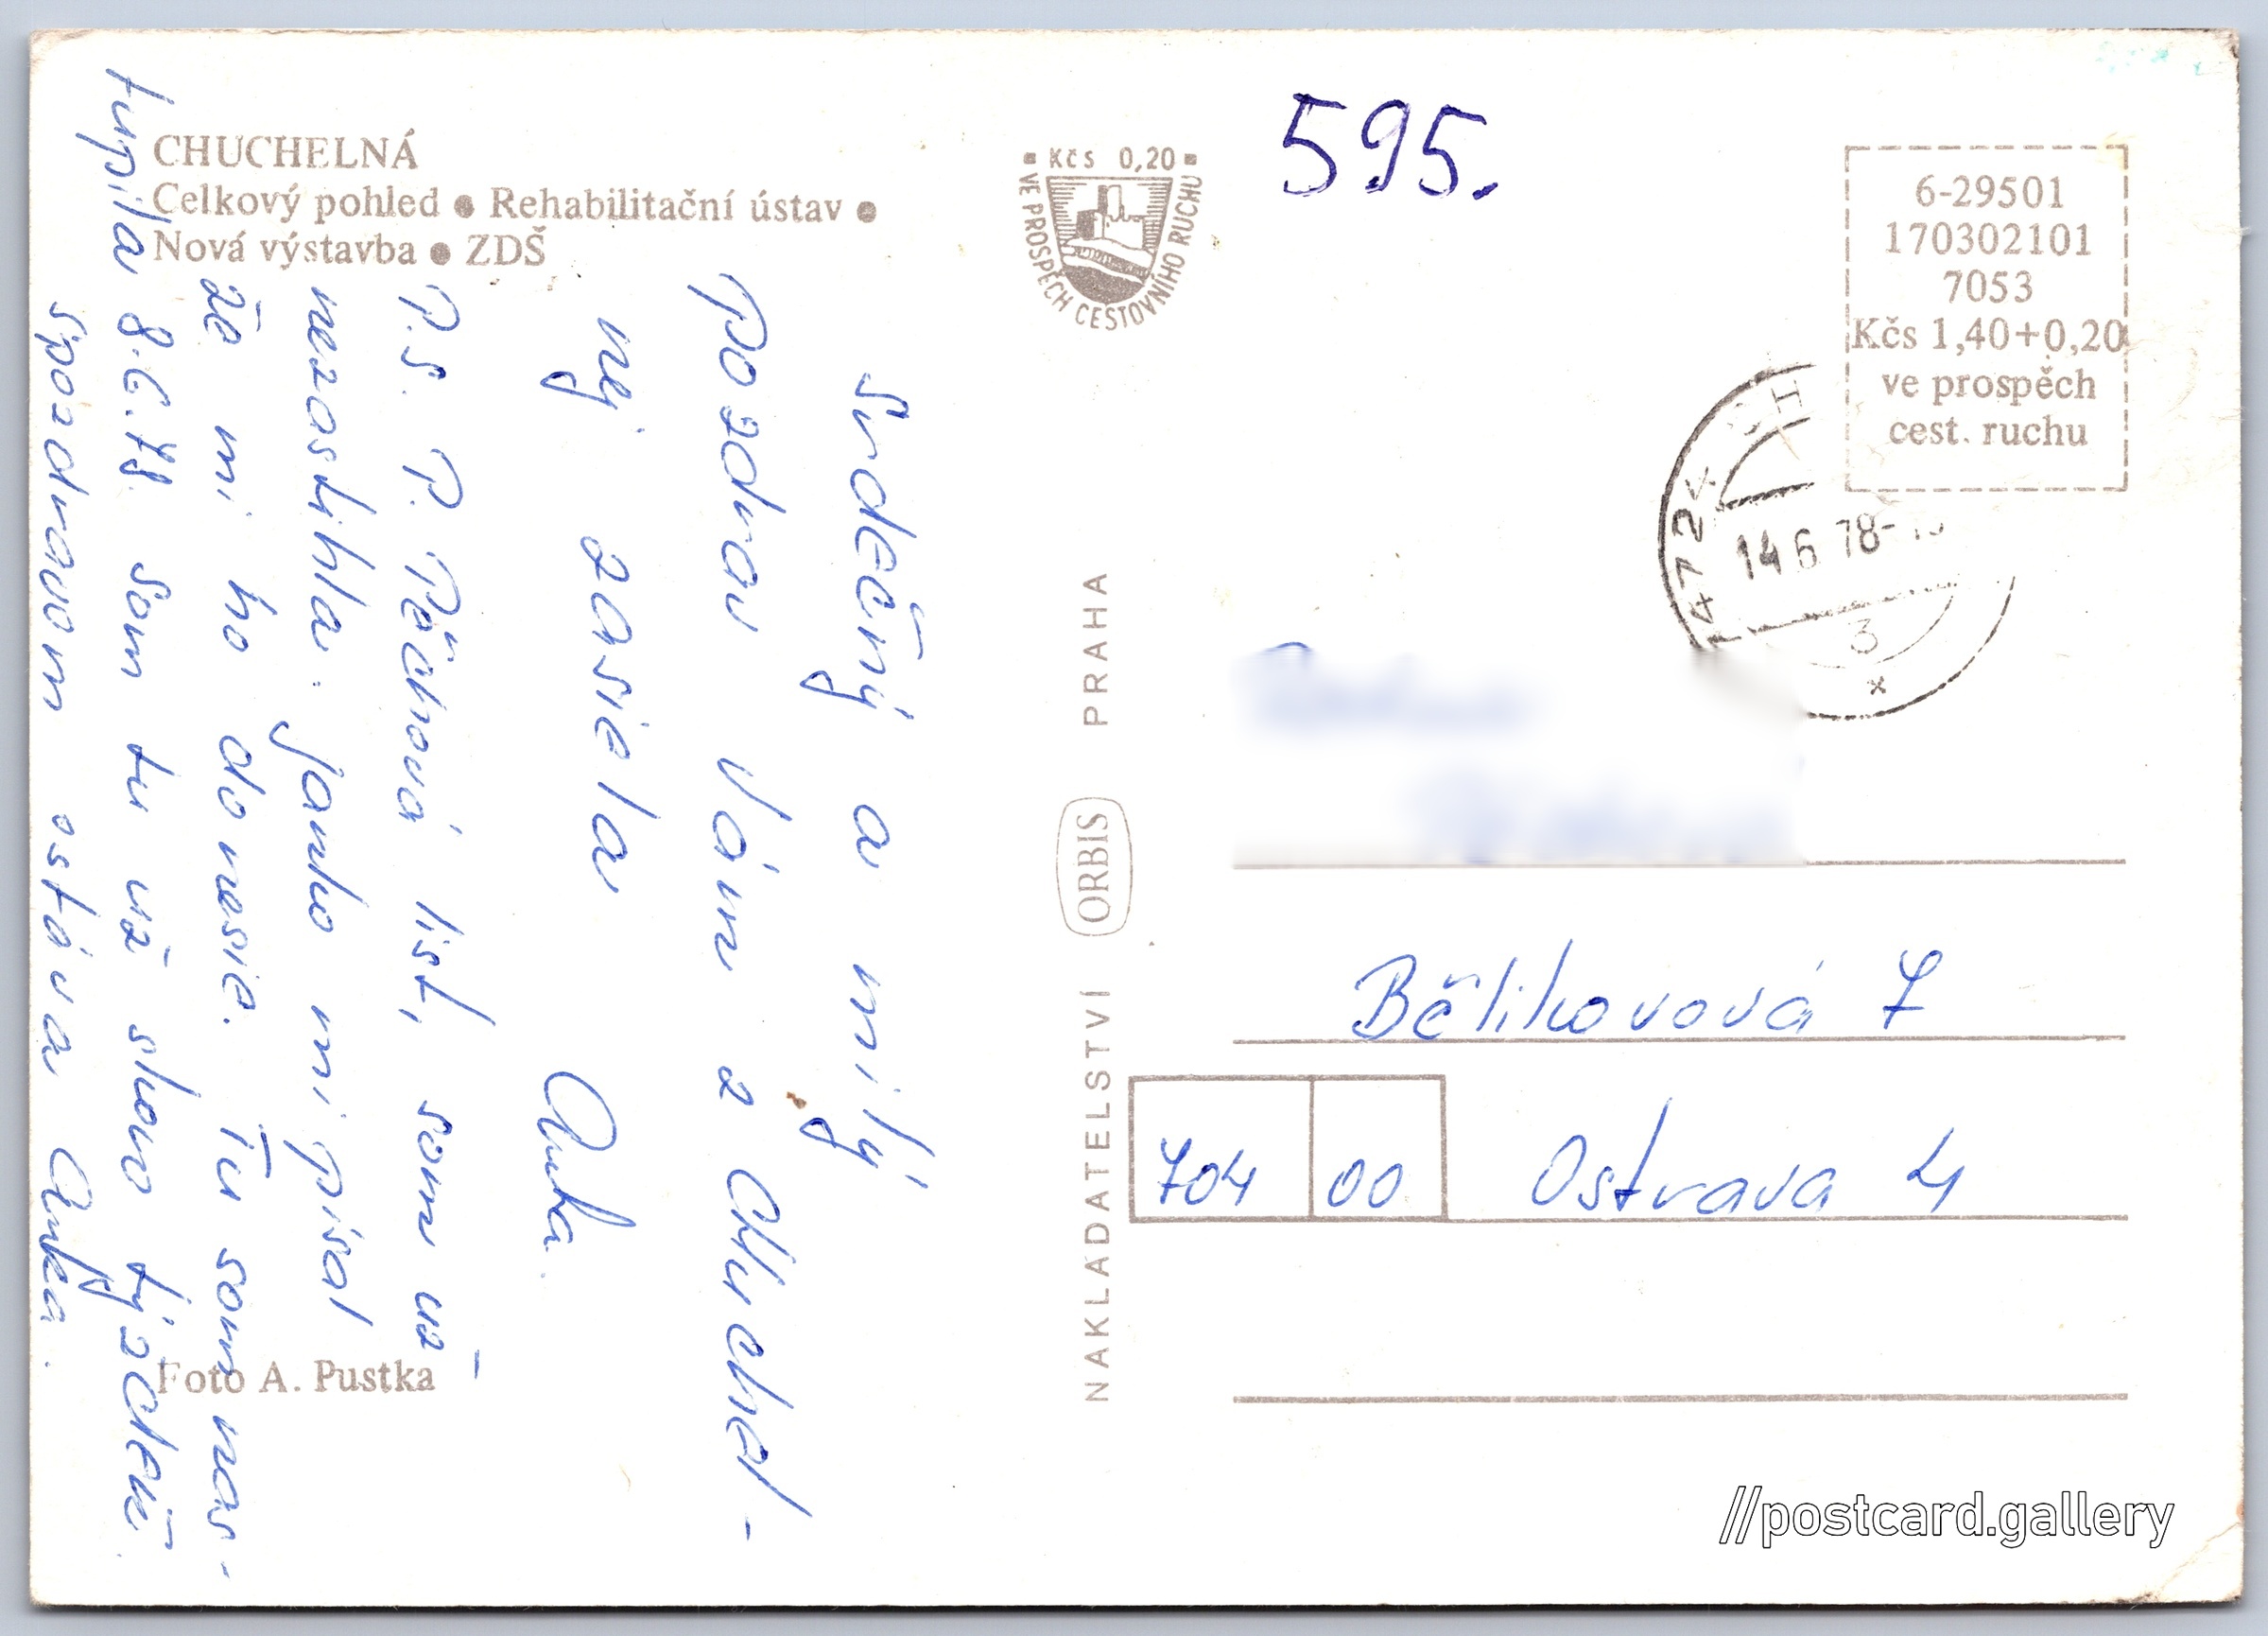 CHUCHELNÁ
Celkový pohled ● Rehabilitační ústav ●
Nová výstavba ● ZDŠ
Srdečný a milý
pozdrav Vám z Chuchel-
nej zasiela
Anka.
P.S. P. list, som už
nezastihla. Janko mi písal
že mi ho donesie. Tu som nas-
túpila 8.6.78 som tu už skoro týždeň
S pozdravom ostáva Anka.
Foto A. Pustka
Kčs 0,20
VE PROSPĚCH CESTOVNÍHO RUCHU
NAKLADATELSTVÍ ORBIS PRAHA
595.
6-29501
170302101
7053
Kčs 1,40+0,20
ve prospěch
cest. ruchu
747 24
14.6.78
3
Bělikovová 7
704 00 Ostrava 4
//postcard.gallery